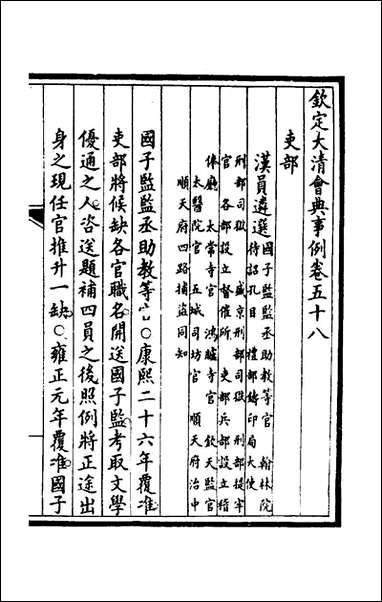 欽定大清會典事例卷五十八
吏部
漢員遴選
國子監監丞助教等官 翰林院
待詔孔目 禮部鑄印局大使
刑部司獄 盛京刑部司獄 刑部提牢
官 各部設立督催所 吏部兵部設立稽
俸廳 太常寺官 鴻臚寺官 欽天監官
太醫院官 五城司坊官 順天府治中
順天府四路捕盜同知
國子監監丞助教等官○康熙二十六年覆准
吏部將候缺各官職名開送國子監考取文學
優通之人咨送題補四員之後照例將正途出
身之現任官推升一缺○雍正元年覆准國子